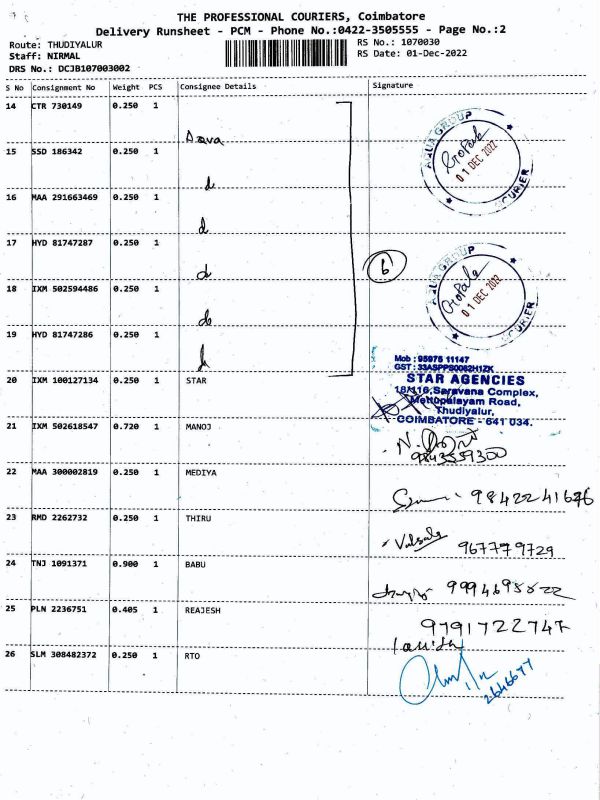 THE PROFESSIONAL COURIERS, Coimbatore
Delivery Runsheet - PCM - Phone No.:0422-3505555 - Page No.:2
Route: THUDIYALUR
Staff: NIRMAL
DRS No.: DCJB107003002
RS No.: 1070030
RS Date: 01-Dec-2022
S No Consignment No Weight PCS Consignee Details Signature
14 CTR 730149 0.250 1
AQUA GROUP
01 DEC 2022
COURIER
15 SSD 186342 0.250 1
16 MAA 291663469 0.250 1
17 HYD 81747287 0.250 1
6
AQUA GROUP
01 DEC 2022
COURIER
18 IXM 502594486 0.250 1
19 HYD 81747286 0.250 1
Mob : 95975 11147
20 IXM 100127134 0.250 1 STAR
STAR AGENCIES
18/116, Saravana Complex,
Mettupalayam Road,
Thudiyalur,
COIMBATORE - 641 034.
21 IXM 502618547 0.720 1 MANOJ
9843559300
22 MAA 300002819 0.250 1 MEDIYA
23 RMD 2262732 0.250 1 THIRU
9677779729
24 TNJ 1091371 0.900 1 BABU
25 PLN 2236751 0.405 1 REAJESH
9791722747
26 SLM 308482372 0.250 1 RTO
2646677